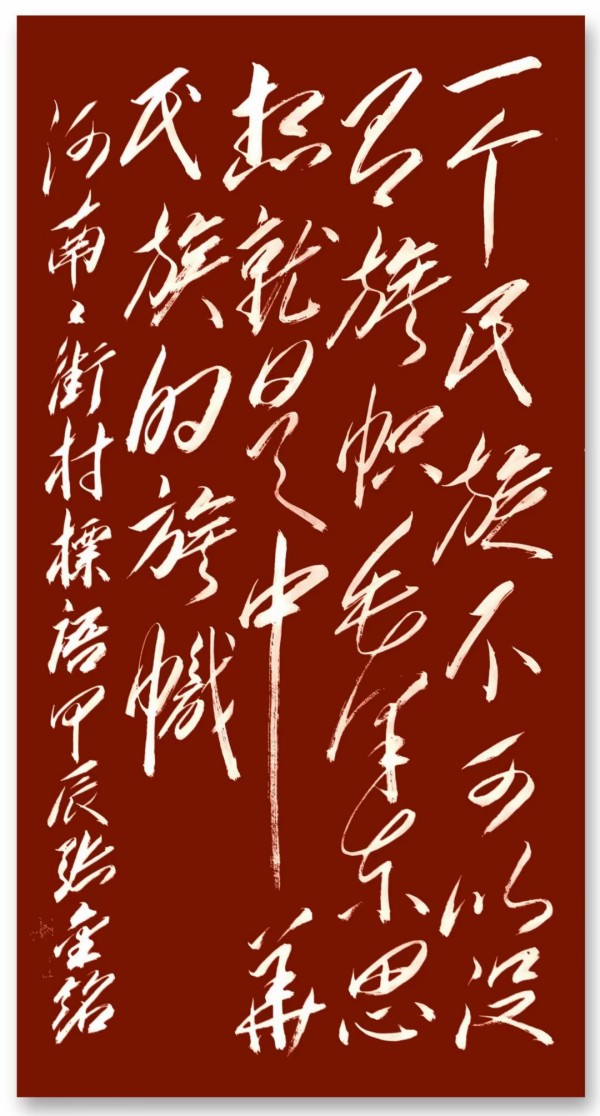 一个民族不可以没
有旗帜毛泽东思
想就是中華
民族的旗幟
河南南街村標語甲辰張金銘